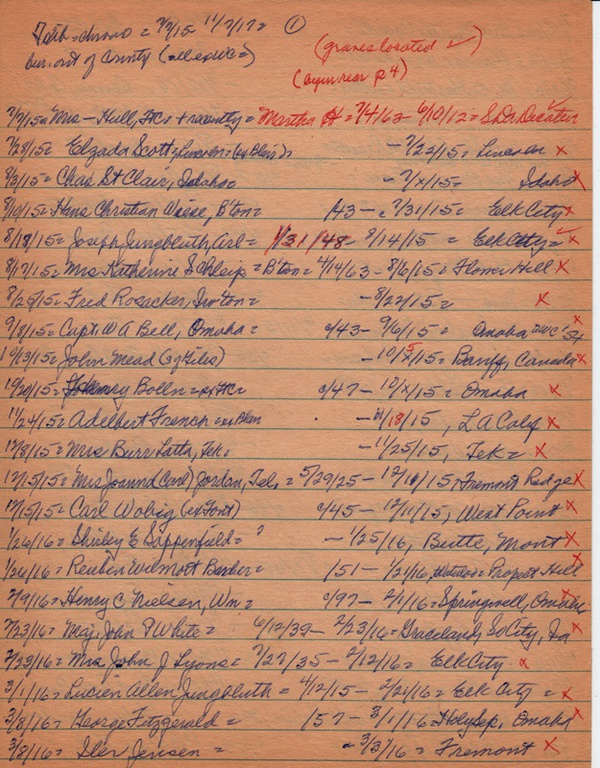 7/7/15 11/7/17= ①
bur. out of County
(graves located ✓)
(begin rear p 4)
7/7/15= Mrs - Hull, FtC= + recently = Martha H= 7/4/62 - 6/10/12= S.Dr. Decatur ✓
7/28/15= Elzada Scott= Lincoln= (ex Blair)= - 7/22/15= Lincoln x
8/3/15= Chas St Clair, Idaho= - 7/x/15= Idaho x
8/10/15= Hans Christian Weise, B'ton= /43 - c 7/31/15= Elk City x
8/18/15= Joseph Jungbluth, Arl= 1/31/48 - 8/14/15 = Elk City= ✓
8/17/15= Mrs Katherine Schleip = B'ton= 4/14/63 - 8/6/15= Flower Hill x
8/25/15= Fred Rosacker, Irv'ton= - 8/22/15= x
9/8/15= Capt. W A Bell, Omaha= c/43 - 9/6/15= Omaha x
10/13/15= John Mead (of Giles) - 10/5/15= Banff, Canada x
10/20/15= Henry Bolln= c/47 - 10/x/15= Omaha x
11/24/15= Adelbert French = ex Blair - 11/18/15, L A Calif x
12/8/15= Mrs Burr Latta, Tek= - 11/25/15, Tek= x
12/15/15= Mrs Joanna (Carl) Jordan, Tek, = 5/29/25 - 12/10/15, Fremont Ridge x
12/15/15= Carl Wobig (ex Font) c/45 - 12/11/15, West Point x
1/26/16= Shirley E Sappenfield= ? - 1/25/16, Butte, Mont x
1/26/16= Reuben Wilmont Barber= /51 - 1/21/16, Prospect Hill x
2/9/16= Henry C Nielsen, Wm= c/97 - 2/1/16= Springwell, Omaha x
2/23/16= Maj. John P White= 6/12/39 - 2/23/16= Graceland, So City, Ia x
2/23/16= Mrs John J Lyons= 3/27/35 - 2/12/16= Elk City x
3/1/16= Lucien Allen Jungbluth = 4/12/15 - 2/24/16= Elk City = x
3/8/16= George Fitzgerald = /57 - 3/1/16= Holy Sep, Omaha x
3/8/16= Iler Jensen = - 3/3/16= Fremont x